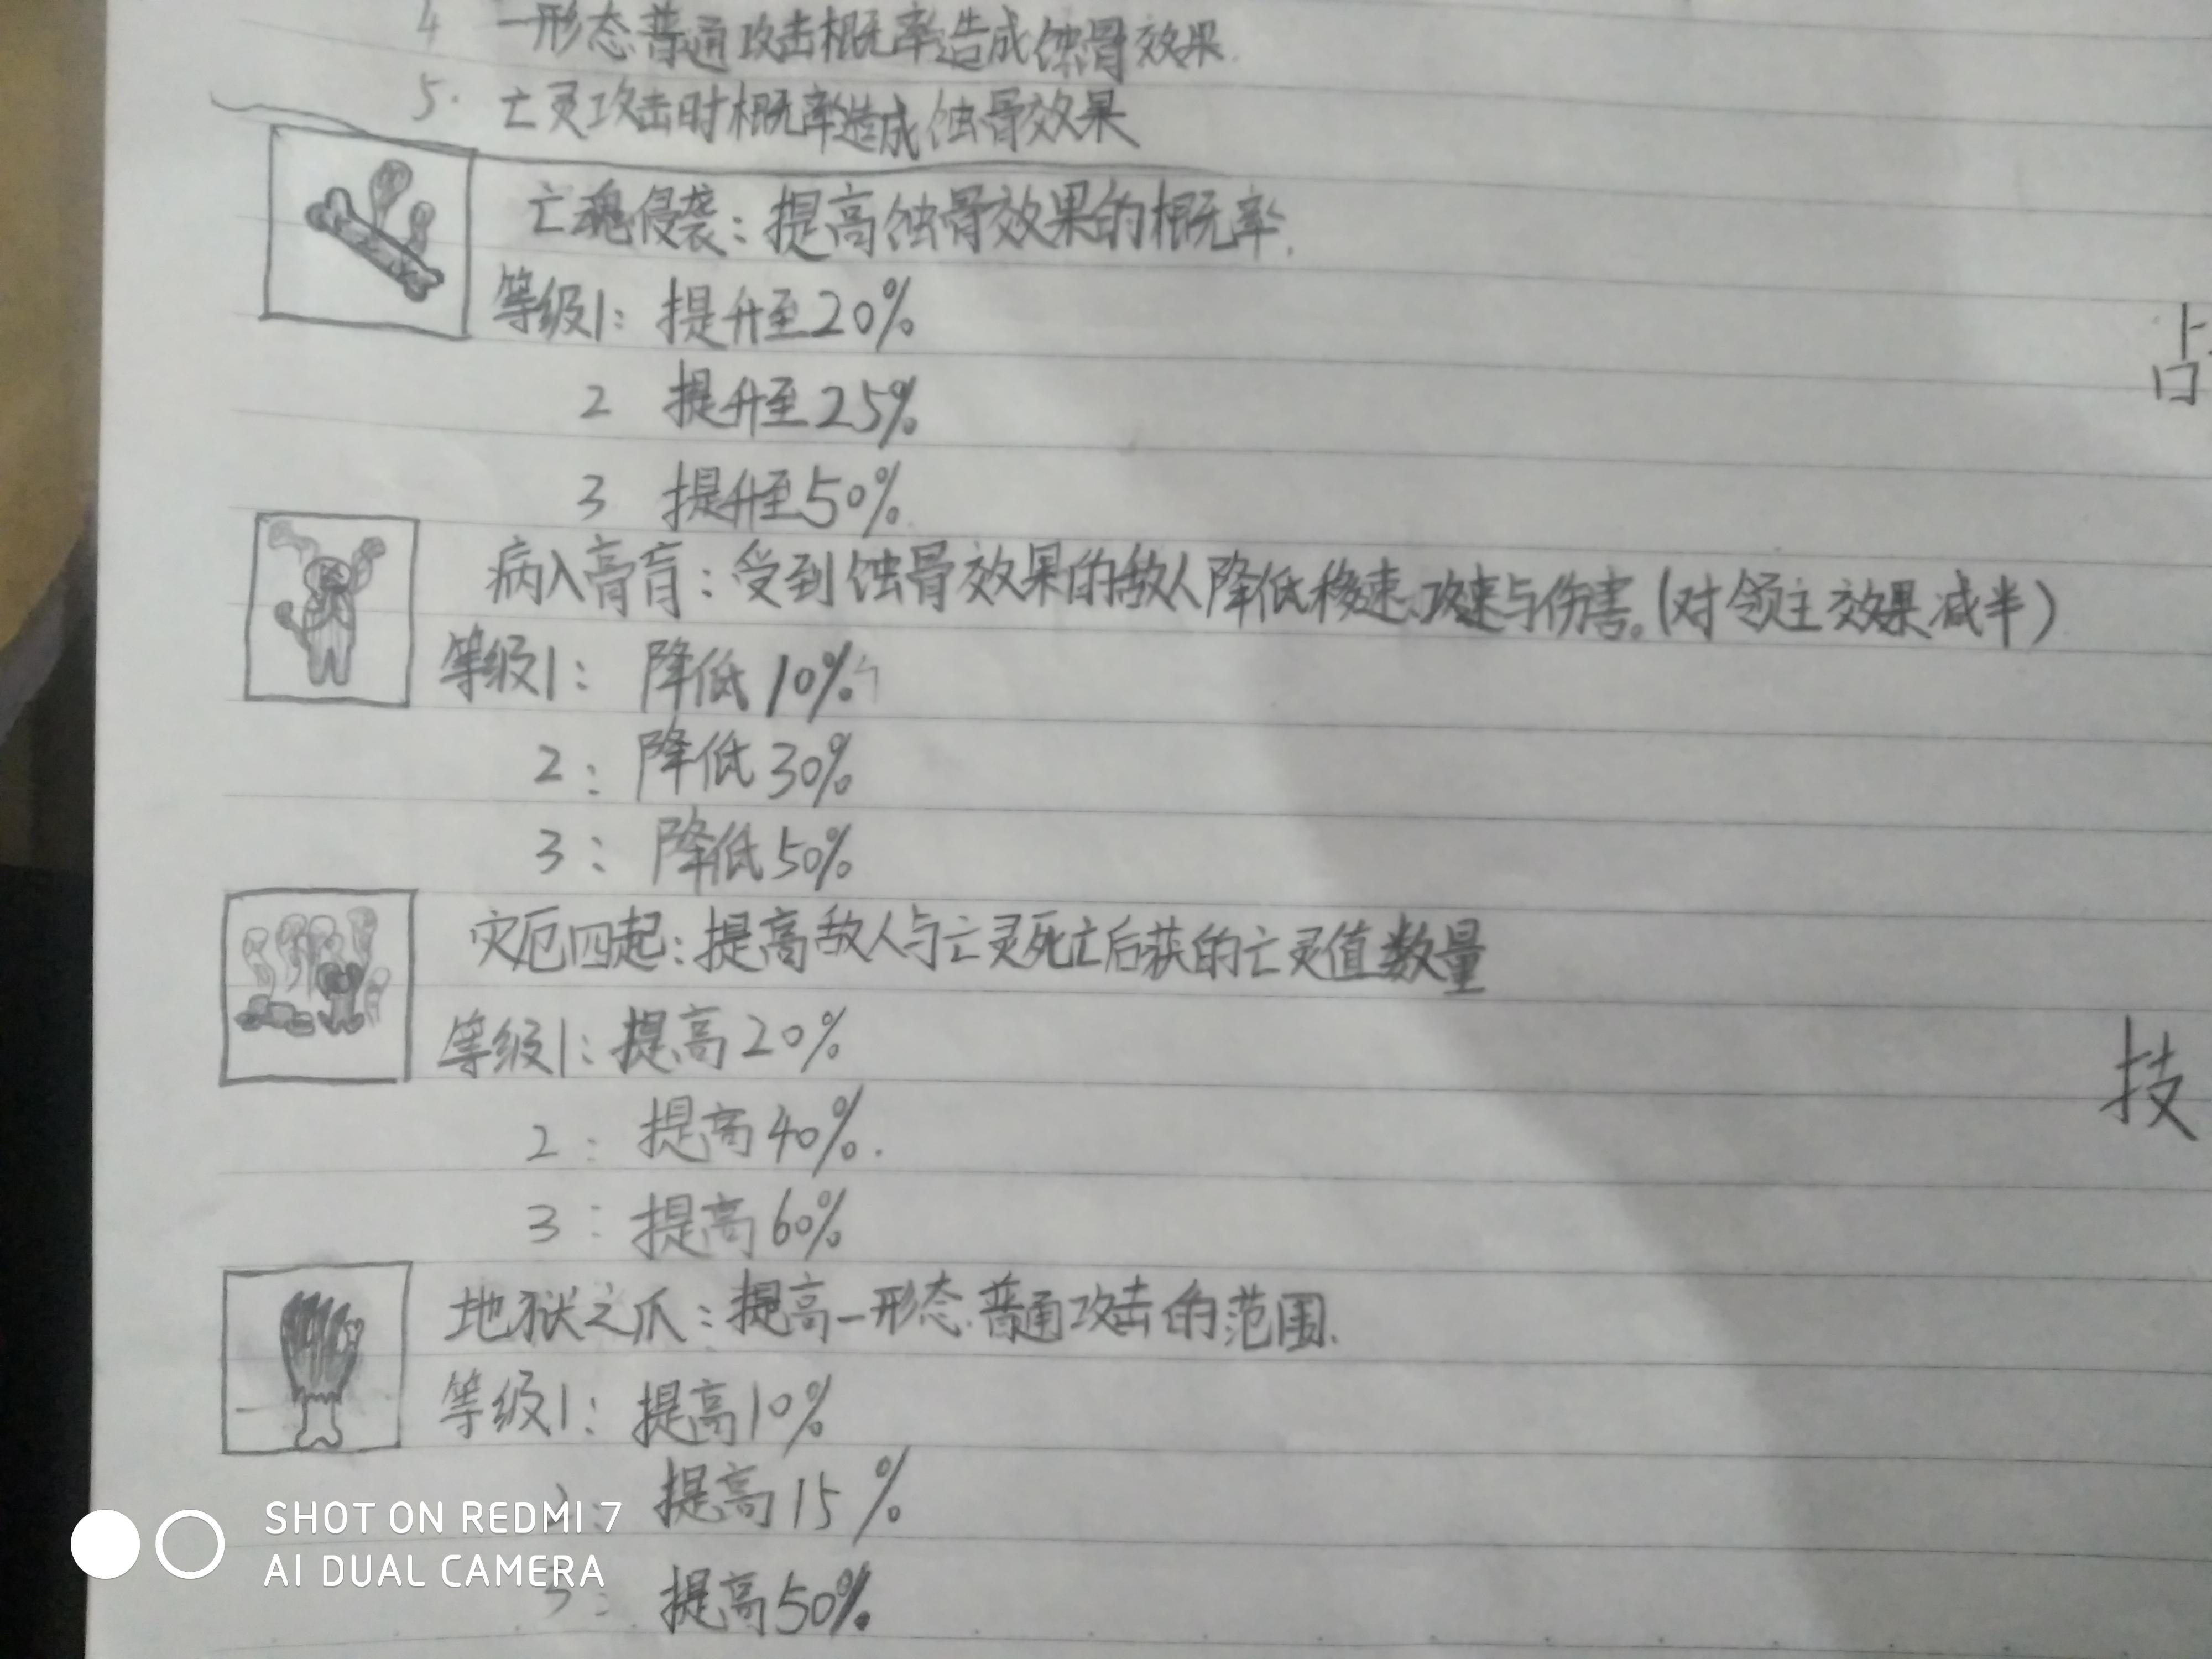 4 一形态普通攻击概率造成蚀骨效果.
5. 亡灵攻击时概率造成蚀骨效果
亡魂侵袭：提高蚀骨效果的概率.
等级1：提升至20%
2 提升至25%
3 提升至50%
病入膏肓：受到蚀骨效果的敌人降低移速、攻速与伤害。(对领主效果减半)
等级1：降低10%
2：降低30%
3：降低50%
灾厄四起：提高敌人与亡灵死亡后获的亡灵值数量
等级1：提高20%
2：提高40%.
3：提高60%
地狱之爪：提高一形态普通攻击的范围.
等级1：提高10%
2：提高15%
3：提高50%
占
技
SHOT ON REDMI 7
AI DUAL CAMERA